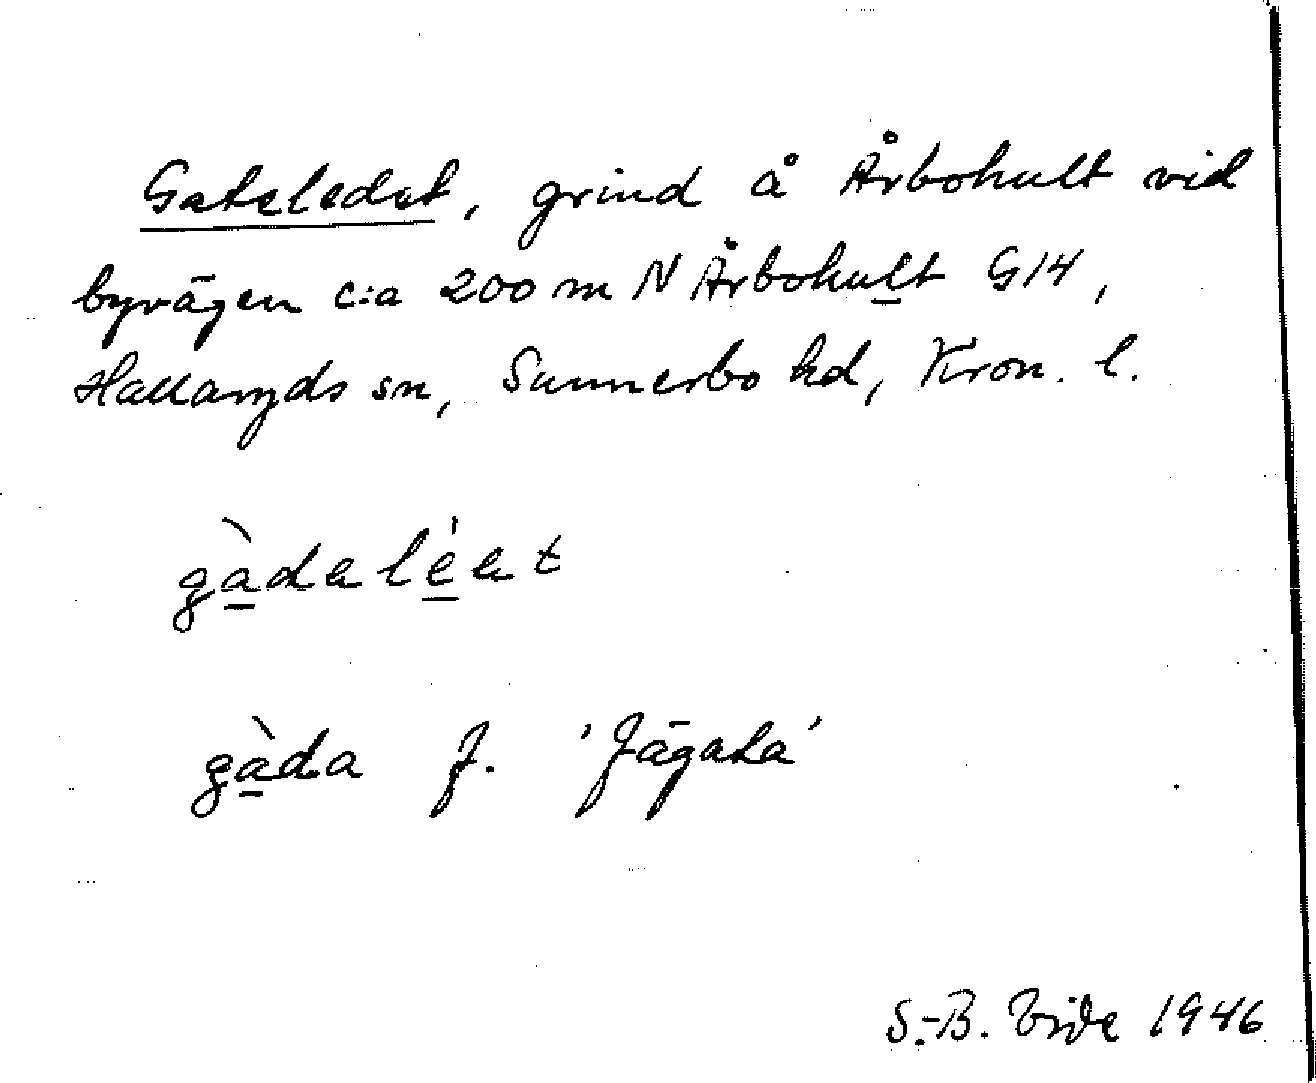 Gateledet, grind å Årbohult vid
byvägen c:a 200 m N Årbohult G14,
Hallaryds sn, Sunnerbo hd, Kron. l.
gàdaléat
gàda f. 'fägata'
S.-B. Vide 1946